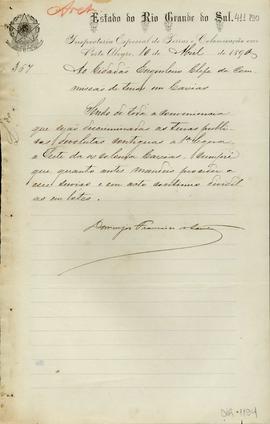 Arch
Estado do Rio Grande do Sul. 411 190
Inspectoria Especial de Terras e Colonização em
Porto Alegre, 10 de Abril de 189
357
Ao Cidadão Engenheiro Chefe da Com-
missão de terras em Caxias
Sendo de toda a conveniencia
que sejão discriminadas as terras publi-
cas devolutas contiguas a
a Leste da Colonia Caxias, cumpre
que, quanto antes mandeis proceder a
esse serviço e em acto continuo dividil
as em lotes.
Domingos Francisco